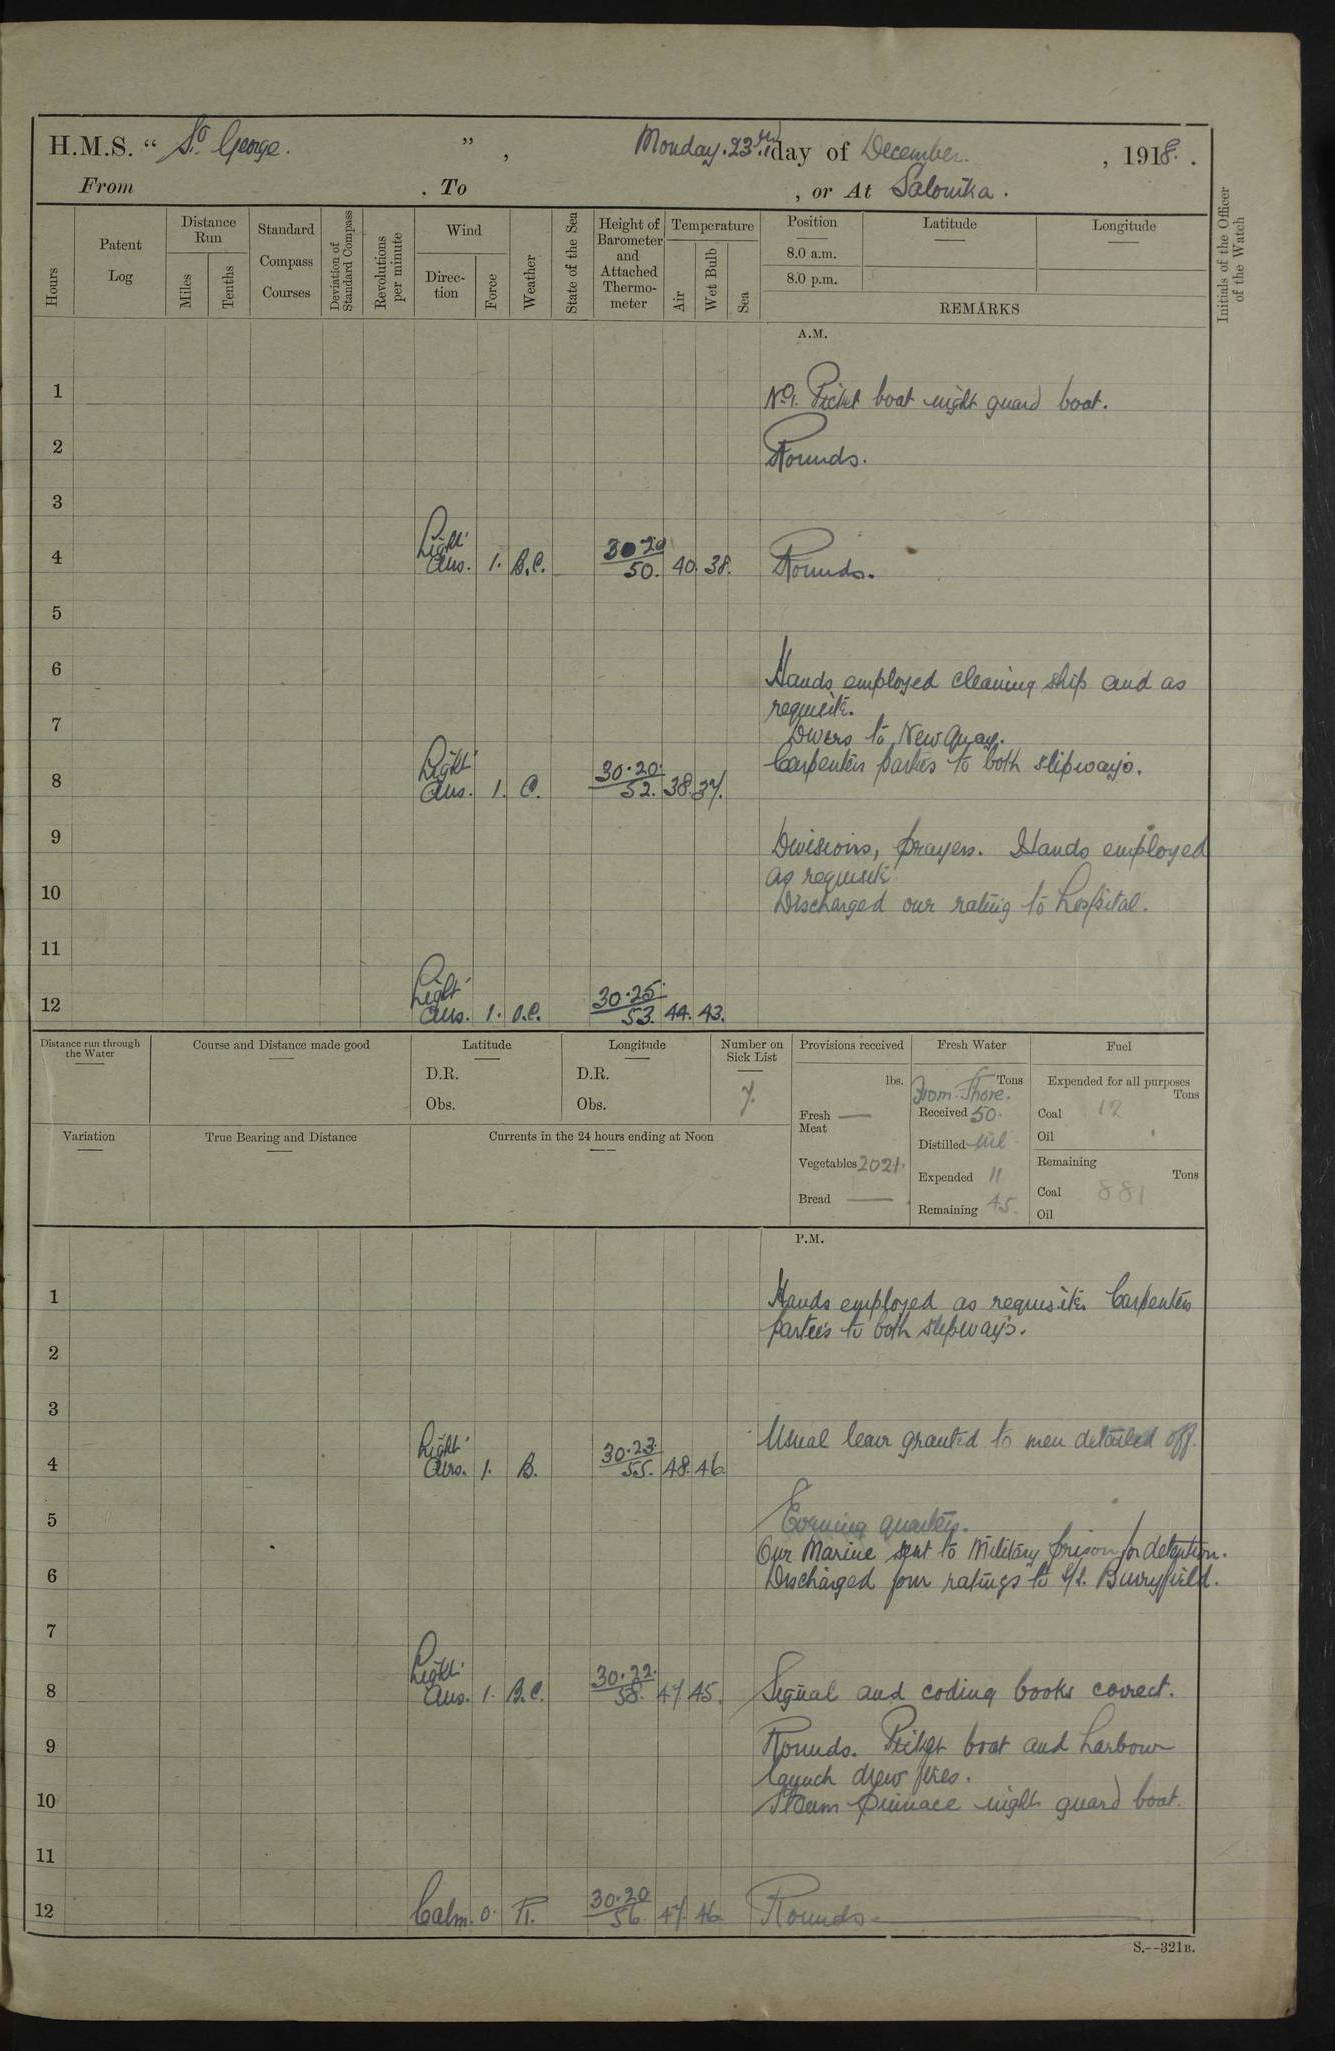 H.M.S. " St. George. ", Monday. 23rd day of December. , 1918. .
From , To , or At Salonika .
Hours
Patent Log
Distance Run
Miles
Tenths
Standard Compass Courses
Deviation of Standard Compass
Revolutions per minute
Wind
Direction
Force
Weather
State of the Sea
Height of Barometer and Attached Thermometer
Temperature
Air
Wet Bulb
Sea
Position
8.0 a.m.
8.0 p.m.
Latitude
Longitude
REMARKS
Initials of the Officer of the Watch
A.M.
1 No. 1. Picket boat night guard boat.
2 Rounds.
3
4 Light Airs. 1. B.C. 30.20 50. 40. 38. Rounds.
5
6 Hands employed cleaning ship and as
requisite.
7 Divers to New Quay.
Carpenters parties to both slipways.
8 Light Airs. 1. C. 30.20. 52. 38. 37.
9 Divisions, prayers. Hands employed
as requisite
10 Discharged one rating to hospital.
11
12 Light Airs. 1. O.C. 30.25. 53. 44. 43.
Distance run through the Water
Course and Distance made good
Latitude
D.R.
Obs.
Longitude
D.R.
Obs.
Number on Sick List
7.
Provisions received
lbs.
Fresh Meat —
Vegetables 2021.
Bread —
Fresh Water
Tons
From Shore.
Received 50.
Distilled nil
Expended 11
Remaining 45.
Fuel
Expended for all purposes
Tons
Coal 12
Oil
Remaining
Tons
Coal 881
Oil
Variation
True Bearing and Distance
Currents in the 24 hours ending at Noon
P.M.
1 Hands employed as requisite. Carpenters
parties to both slipways.
2
3
Usual leave granted to men detailed off.
4 Light Airs. 1. B. 30.23. 55. 48. 46.
5 Evening quarters.
One Marine sent to Military prison for detention.
6 Discharged four ratings to S/S.
7
8 Light Airs. 1. B.C. 30.22. 58. 47. 45. Signal and coding books correct.
9 Rounds. Picket boat and harbour
launch drew fires.
10 Steam pinnace night guard boat.
11
12 Calm. 0. 30.20 56. 47. 46. Rounds.
S.--321B.